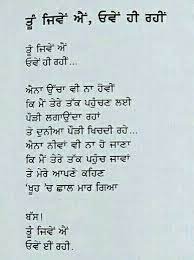 ਤੂੰ ਜਿਵੇਂ ਐਂ, ਓਵੇਂ ਹੀ ਰਹੀਂ
ਤੂੰ ਜਿਵੇਂ ਐਂ
ਓਵੇਂ ਹੀ ਰਹੀਂ...
ਐਨਾ ਉੱਚਾ ਵੀ ਨਾ ਹੋਵੀਂ
ਕਿ ਮੈਂ ਤੇਰੇ ਤੱਕ ਪਹੁੰਚਣ ਲਈ
ਪੌੜੀ ਲਗਾਉਂਦਾ ਰਹਾਂ
ਤੇ ਦੁਨੀਆ ਪੌੜੀ ਖਿਚਦੀ ਰਹੇ...
ਐਨਾ ਨੀਵਾਂ ਵੀ ਨਾ ਹੋ ਜਾਣਾ
ਕਿ ਮੈਂ ਤੇਰੇ ਤੱਕ ਪਹੁੰਚ ਜਾਵਾਂ
ਤੇ ਮੇਰੇ ਆਪਣੇ ਕਹਿਣ
'ਖੂਹ 'ਚ ਛਾਲ ਮਾਰ ਗਿਆ
ਬੱਸ!
ਤੂੰ ਜਿਵੇਂ ਐਂ
ਓਵੇਂ ਈਂ ਰਹੀਂ.